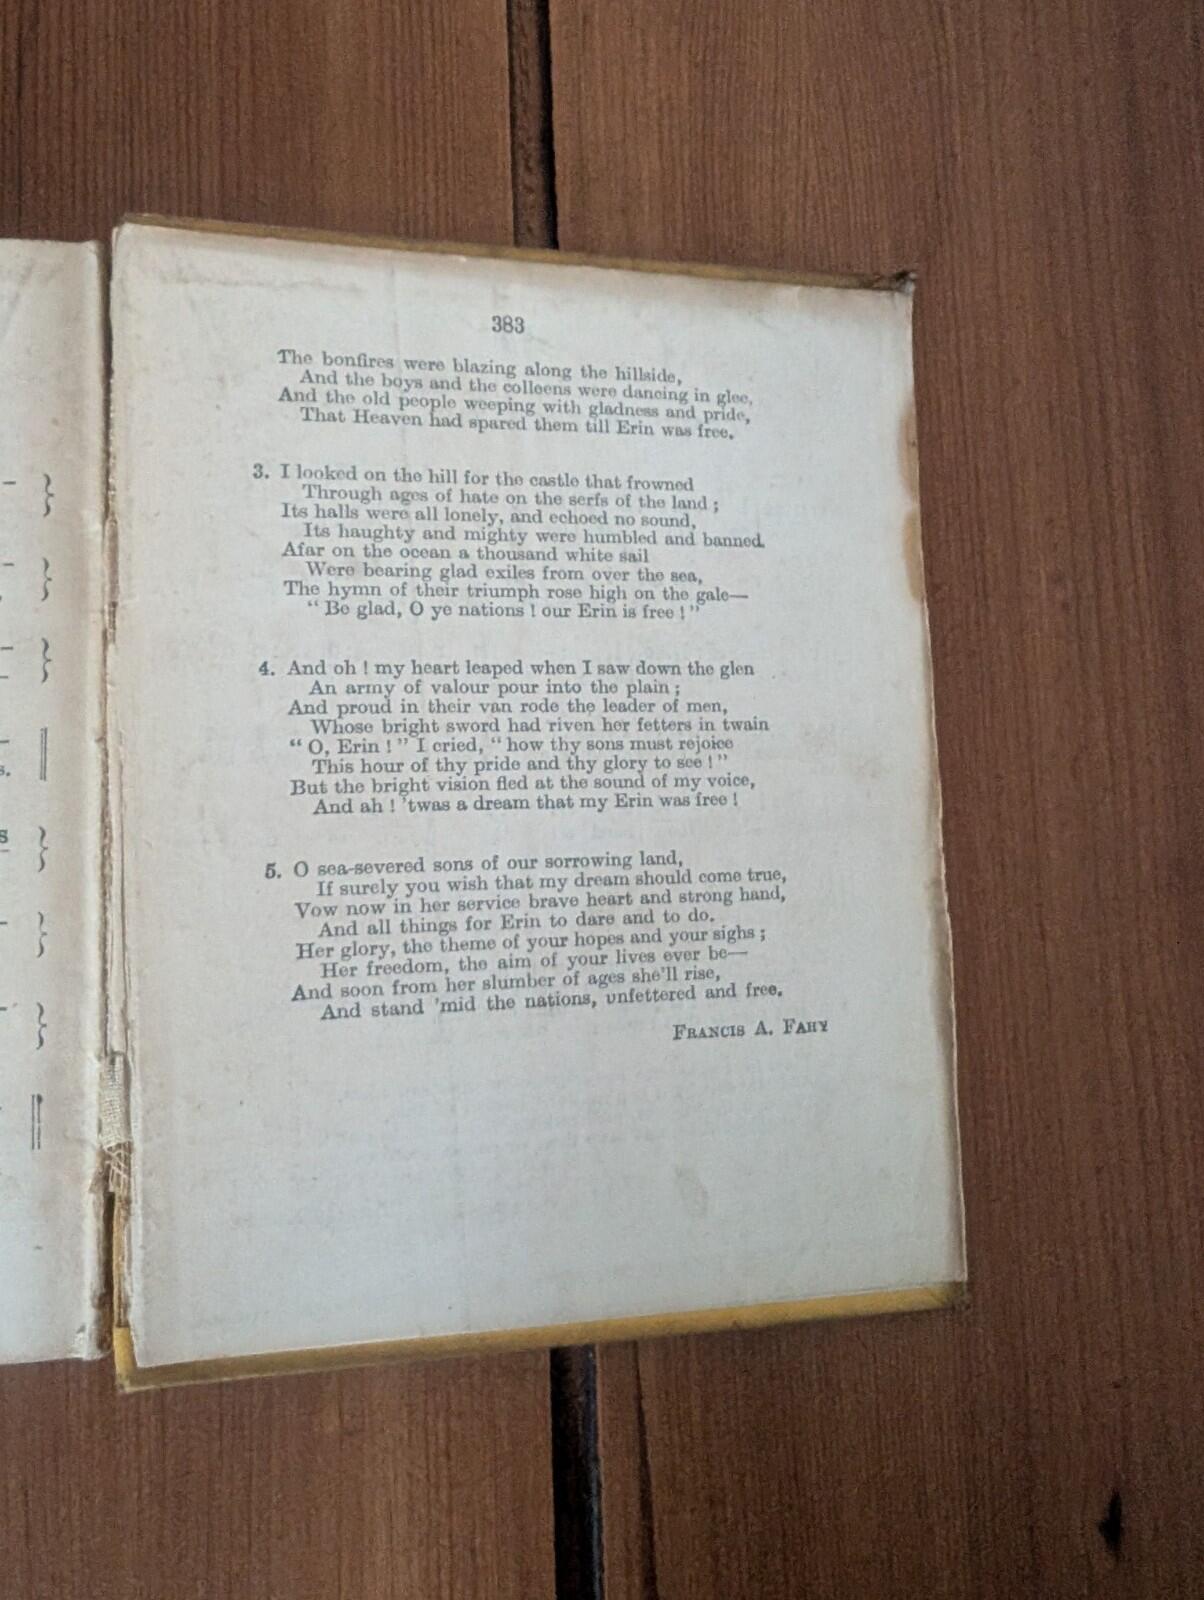 383
The bonfires were blazing along the hillside,
And the boys and the colleens were dancing in glee,
And the old people weeping with gladness and pride,
That Heaven had spared them till Erin was free.
3. I looked on the hill for the castle that frowned
Through ages of hate on the serfs of the land ;
Its halls were all lonely, and echoed no sound,
Its haughty and mighty were humbled and banned.
Afar on the ocean a thousand white sail
Were bearing glad exiles from over the sea,
The hymn of their triumph rose high on the gale—
“ Be glad, O ye nations ! our Erin is free ! ”
4. And oh ! my heart leaped when I saw down the glen
An army of valour pour into the plain ;
And proud in their van rode the leader of men,
Whose bright sword had riven her fetters in twain
“ O, Erin ! ” I cried, “ how thy sons must rejoice
This hour of thy pride and thy glory to see ! ”
But the bright vision fled at the sound of my voice,
And ah ! 'twas a dream that my Erin was free !
5. O sea-severed sons of our sorrowing land,
If surely you wish that my dream should come true,
Vow now in her service brave heart and strong hand,
And all things for Erin to dare and to do.
Her glory, the theme of your hopes and your sighs ;
Her freedom, the aim of your lives ever be—
And soon from her slumber of ages she'll rise,
And stand 'mid the nations, unfettered and free.
FRANCIS A. FAHY